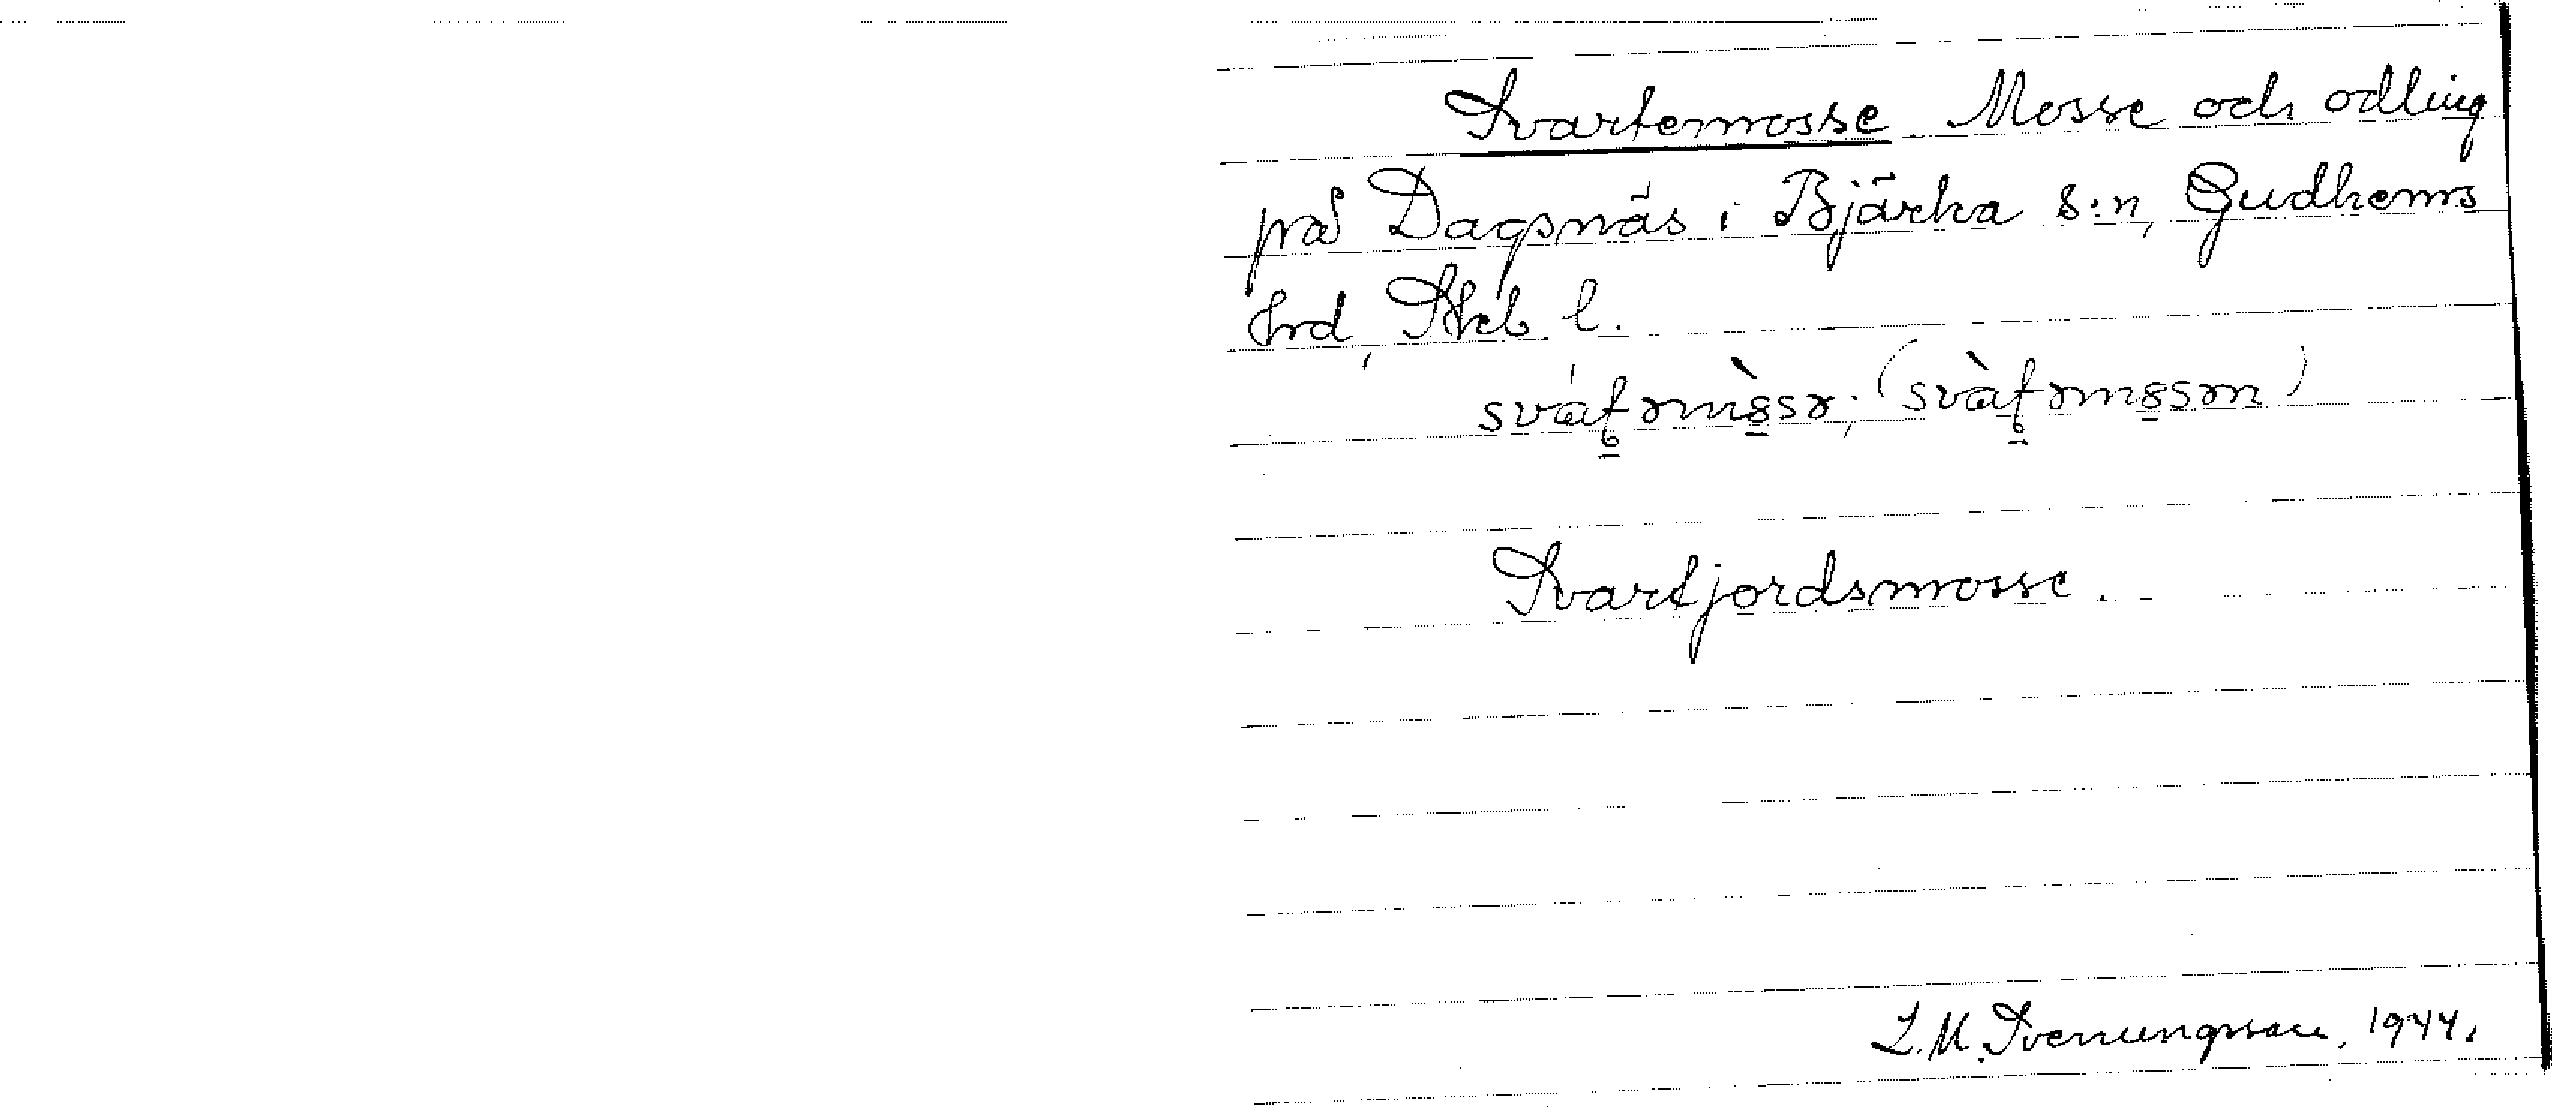 Svartemosse Mosse och odling
på Dagsnäs i Bjärka s:n, Gudhems
hrd, Skb l.
Svartjordsmosse.
L. M. Svenungsson, 1944.